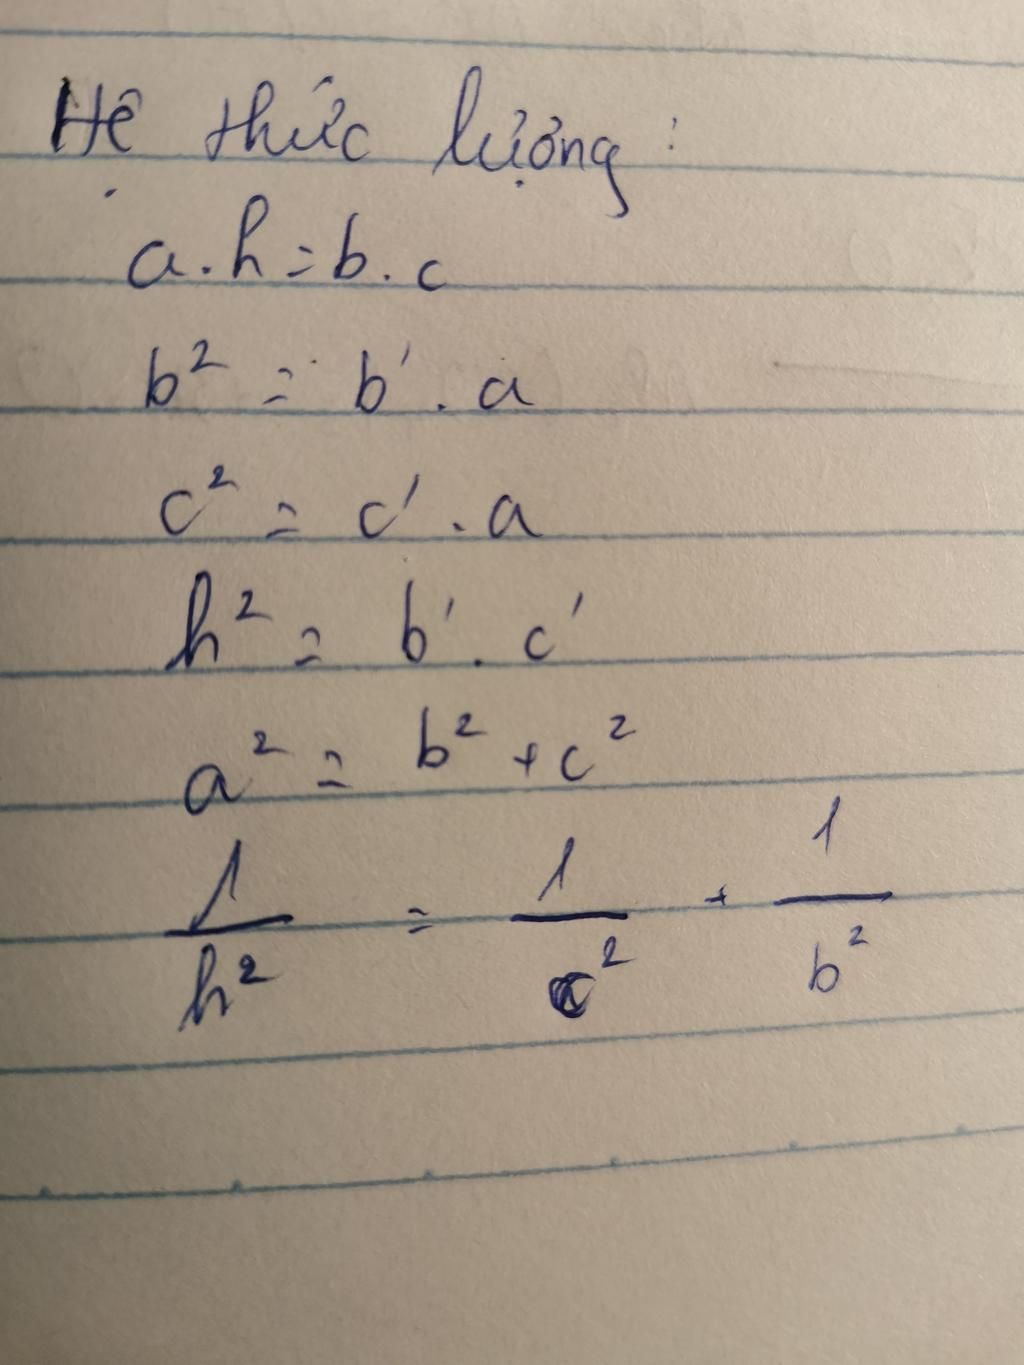 Hệ thức lượng:
a.h=b.c
b² = b'.a
c² = c'.a
h² = b'.c'
a² = b² + c²
1/h² = 1/c² + 1/b²